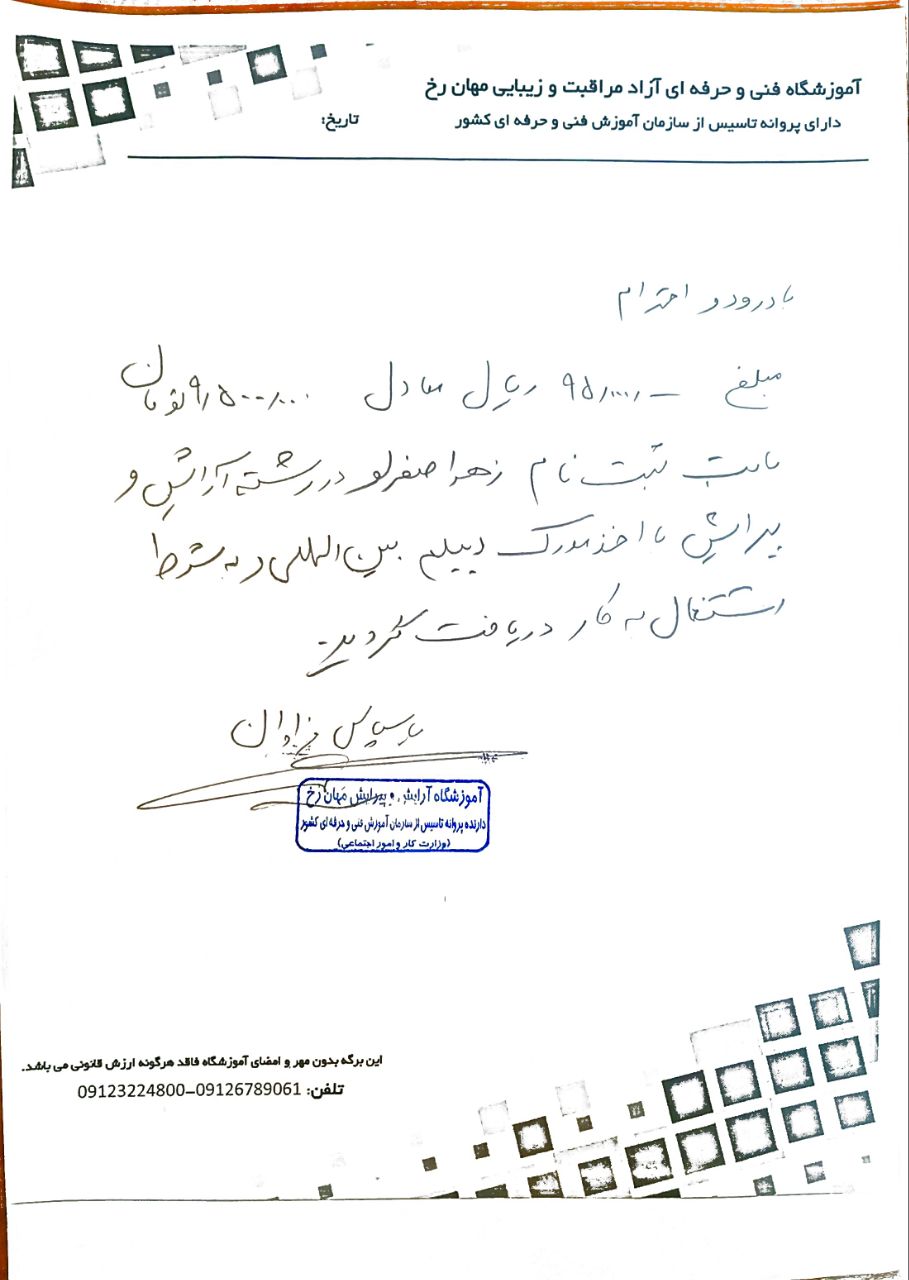 آموزشگاه فنی و حرفه ای آزاد مراقبت و زیبایی مهان رخ
دارای پروانه تاسیس از سازمان آموزش فنی و حرفه ای کشور
تاریخ:
با درود و احترام
مبلغ ۹۵/۰۰۰/۰۰۰ ریال معادل ۹/۵۰۰/۰۰۰ تومان
بابت ثبت نام زهرا صفرلو در رشته آرایش و
پیرایش با اخذ مدرک دیپلم بین المللی و به شرط
اشتغال به کار دریافت گردید.
با سپاس فراوان
آموزشگاه آرایش و پیرایش مهان رخ
دارنده پروانه تاسیس از سازمان آموزش فنی و حرفه ای کشور
(وزارت کار و امور اجتماعی)
این برگه بدون مهر و امضای آموزشگاه فاقد هرگونه ارزش قانونی می باشد.
تلفن: 09126789061-09123224800